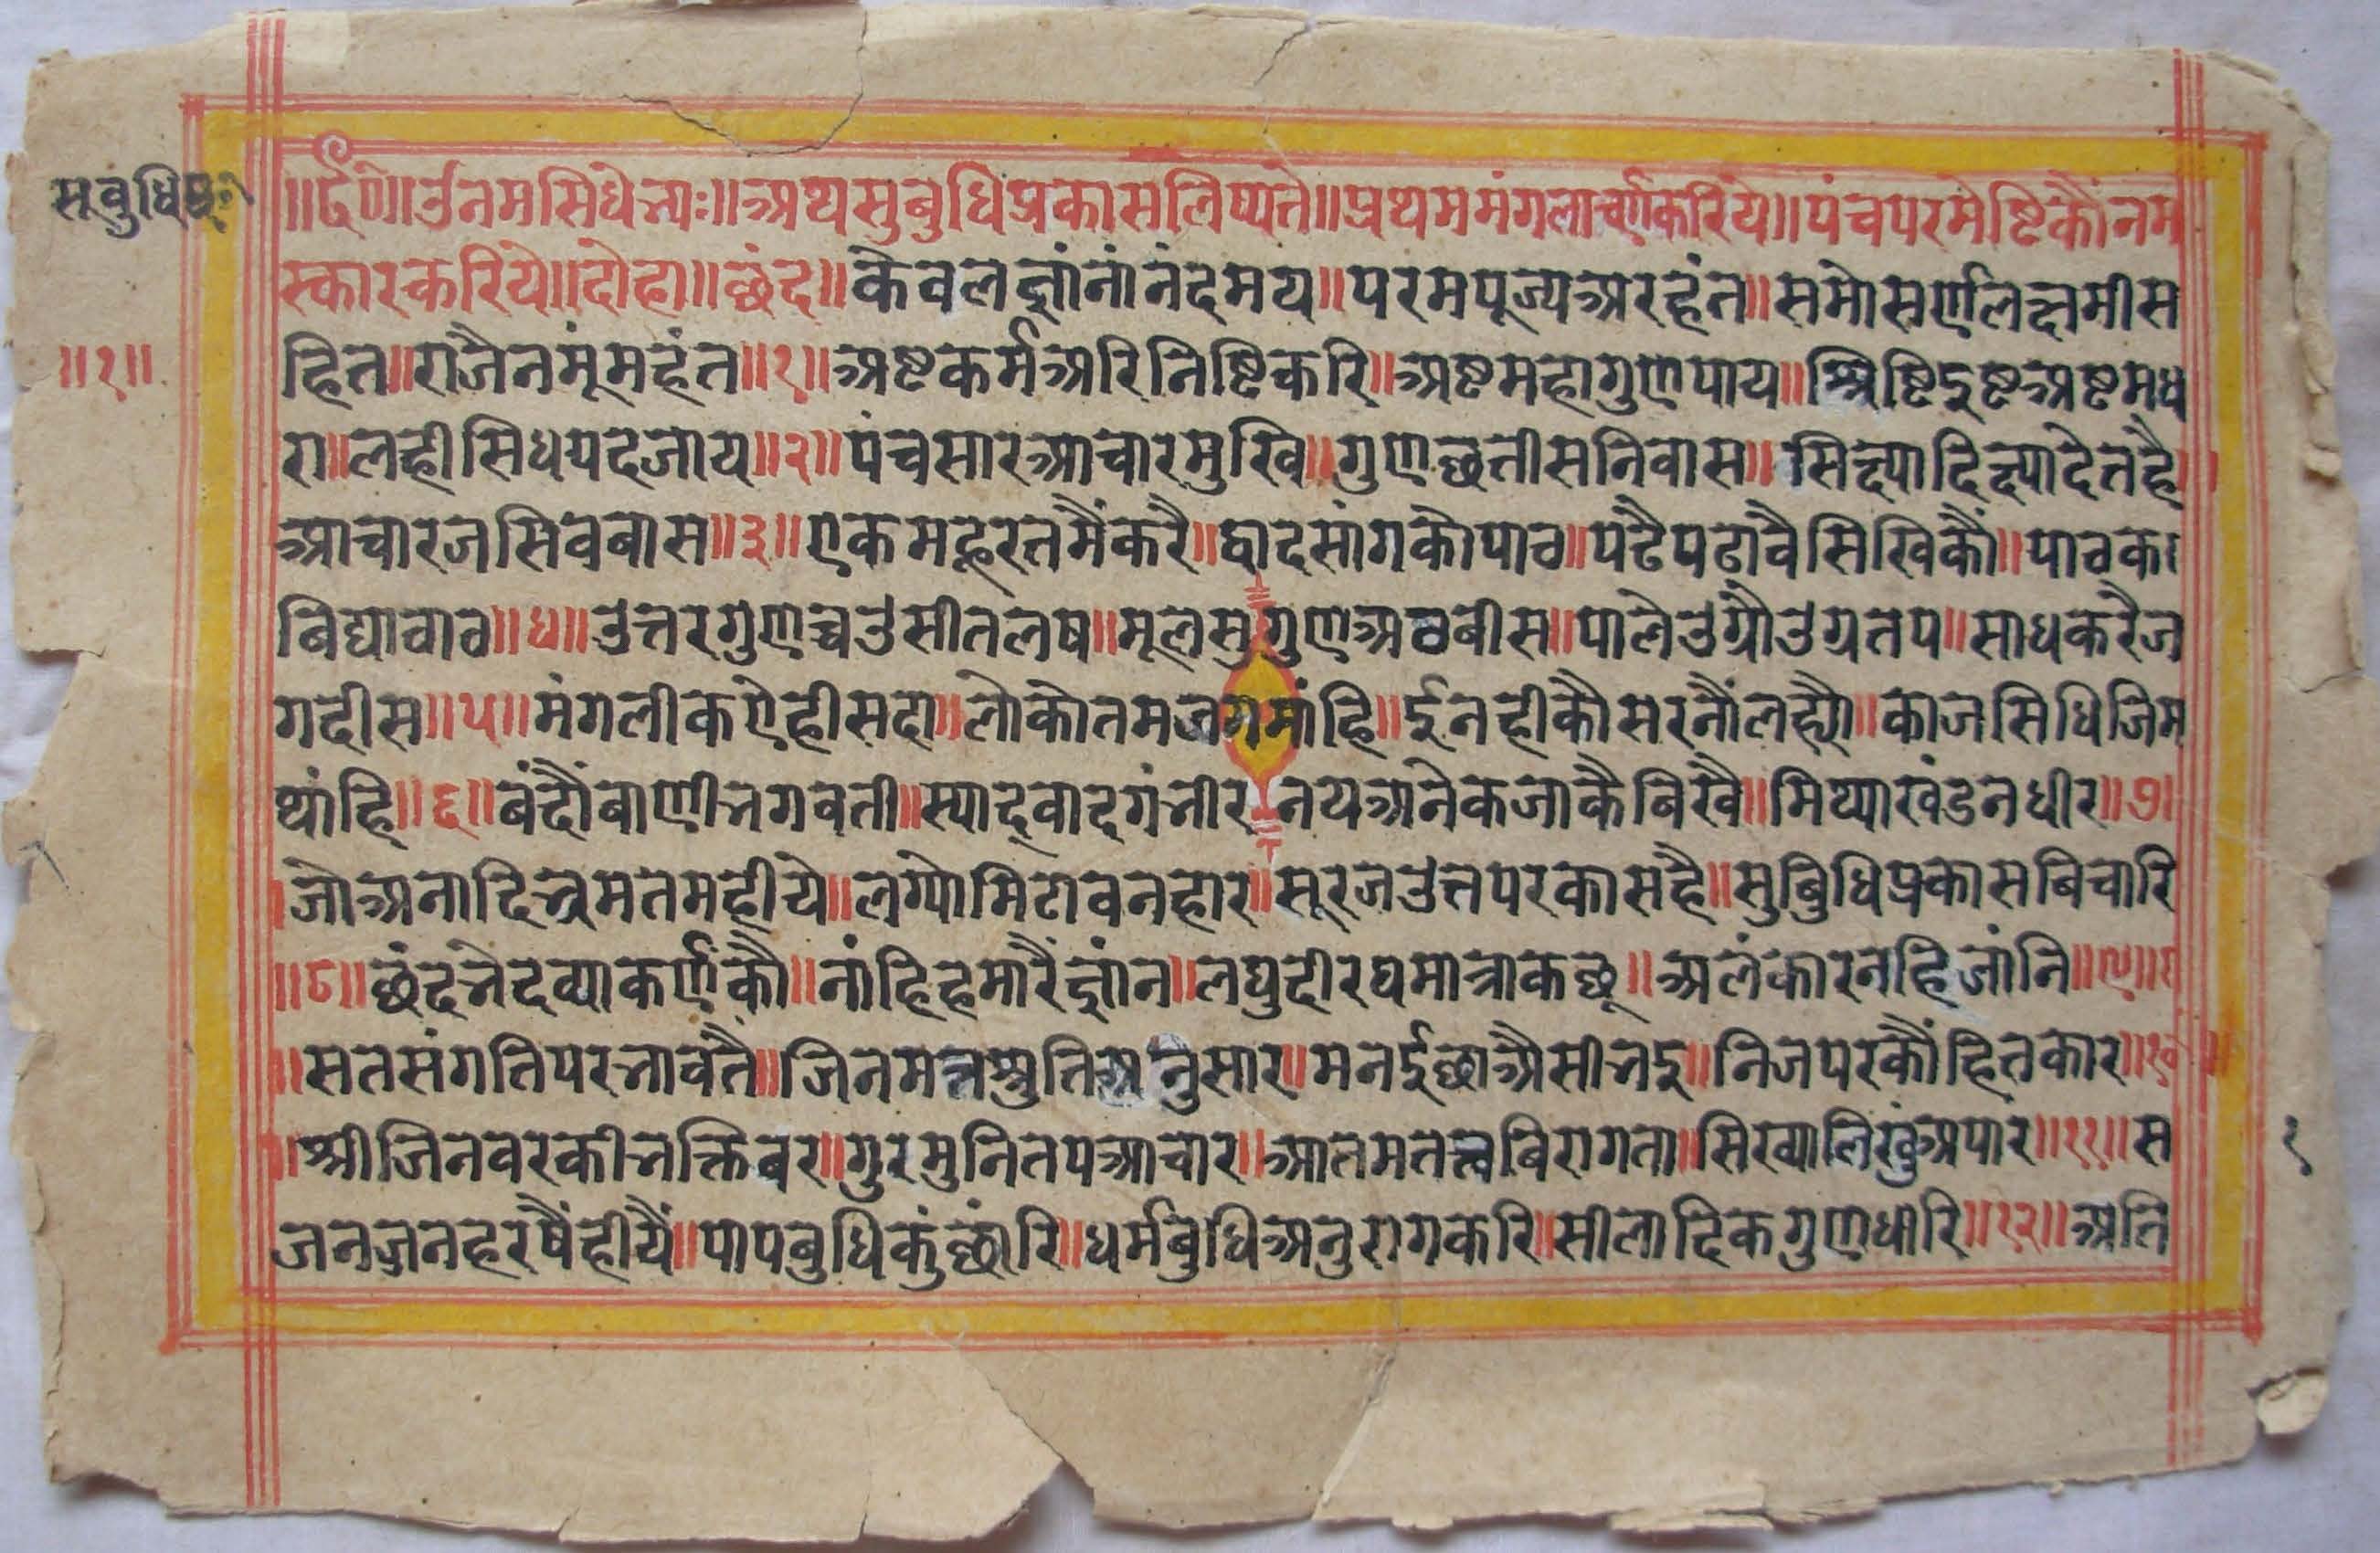 सुबुधिप्र
॥१॥
॥६०॥ उंनमसिधेभ्यः॥अथसुबुधिप्रकासलिष्यते॥प्रथममंगलाचर्णकरिये॥पंचपरमेष्टिकौंनम
स्कारकरिये॥दोहा॥छंद॥केवलज्ञांनांनंदमय॥परमपूज्यअरहंत॥समोसर्णलक्षमीस
हित॥राजैनमूंमहंत॥१॥अष्टकर्मअरिनिष्टिकरि॥अष्टमहागुणपाय॥श्रिष्टिदुष्टअष्टमध
रा॥लहीसिधपदजाय॥२॥पंचसारआचारमुखि॥गुणछतीसनिवास॥सिक्ष्यादिक्ष्यादेतहै
आचारजसिवबास॥३॥एकमहूरतमैंकरै॥द्वादसांगकौपाठ॥पढैपढावैसिखिकौं॥पाठका
बिद्यावाठ॥४॥उत्तरगुणचउसीतलष॥मूलसुगुणअठबीस॥पालेउग्रौउग्रतप॥साधकरैज
गदीस॥५॥मंगलीकऐहीसदा॥लोकोतमजगमांहि॥ईनहीकौसरनौंलह्यौ॥काजसिधिजिम
थांहि॥६॥बंदौंबाणीभगवती॥स्याद्वादगंभीर॥नयअनेकजाकैबिखै॥मिथ्याखंडनधीर॥७॥
जोअनादिभ्रमतमहीये॥लग्योमिटावनहार॥सूरजउत्तपरकासहै॥सुबुधिप्रकासबिचारि
॥८॥छंदभेदव्याकर्णकौ॥नांहिहमारैंज्ञांन॥लघुदीरघमात्राकछू॥अलंकारनहिजांनि॥९॥
॥सतसंगतिपरभावतैं॥जिनमतश्रुतिअनुसार॥मनईछाअैसीभई॥निजपरकौंहितकार॥१०॥
॥श्रीजिनवरकीभक्तिबर॥गुरमुनितपआचार॥आतमतत्त्वबिरागता॥सिख्यालिखुंअपार॥११॥स
जनजनहरषैंहीयैं॥पापबुधिकुंछांरि॥धर्मबुधिअनुरागकरि॥सीलादिकगुणधारि॥१२॥अति
१